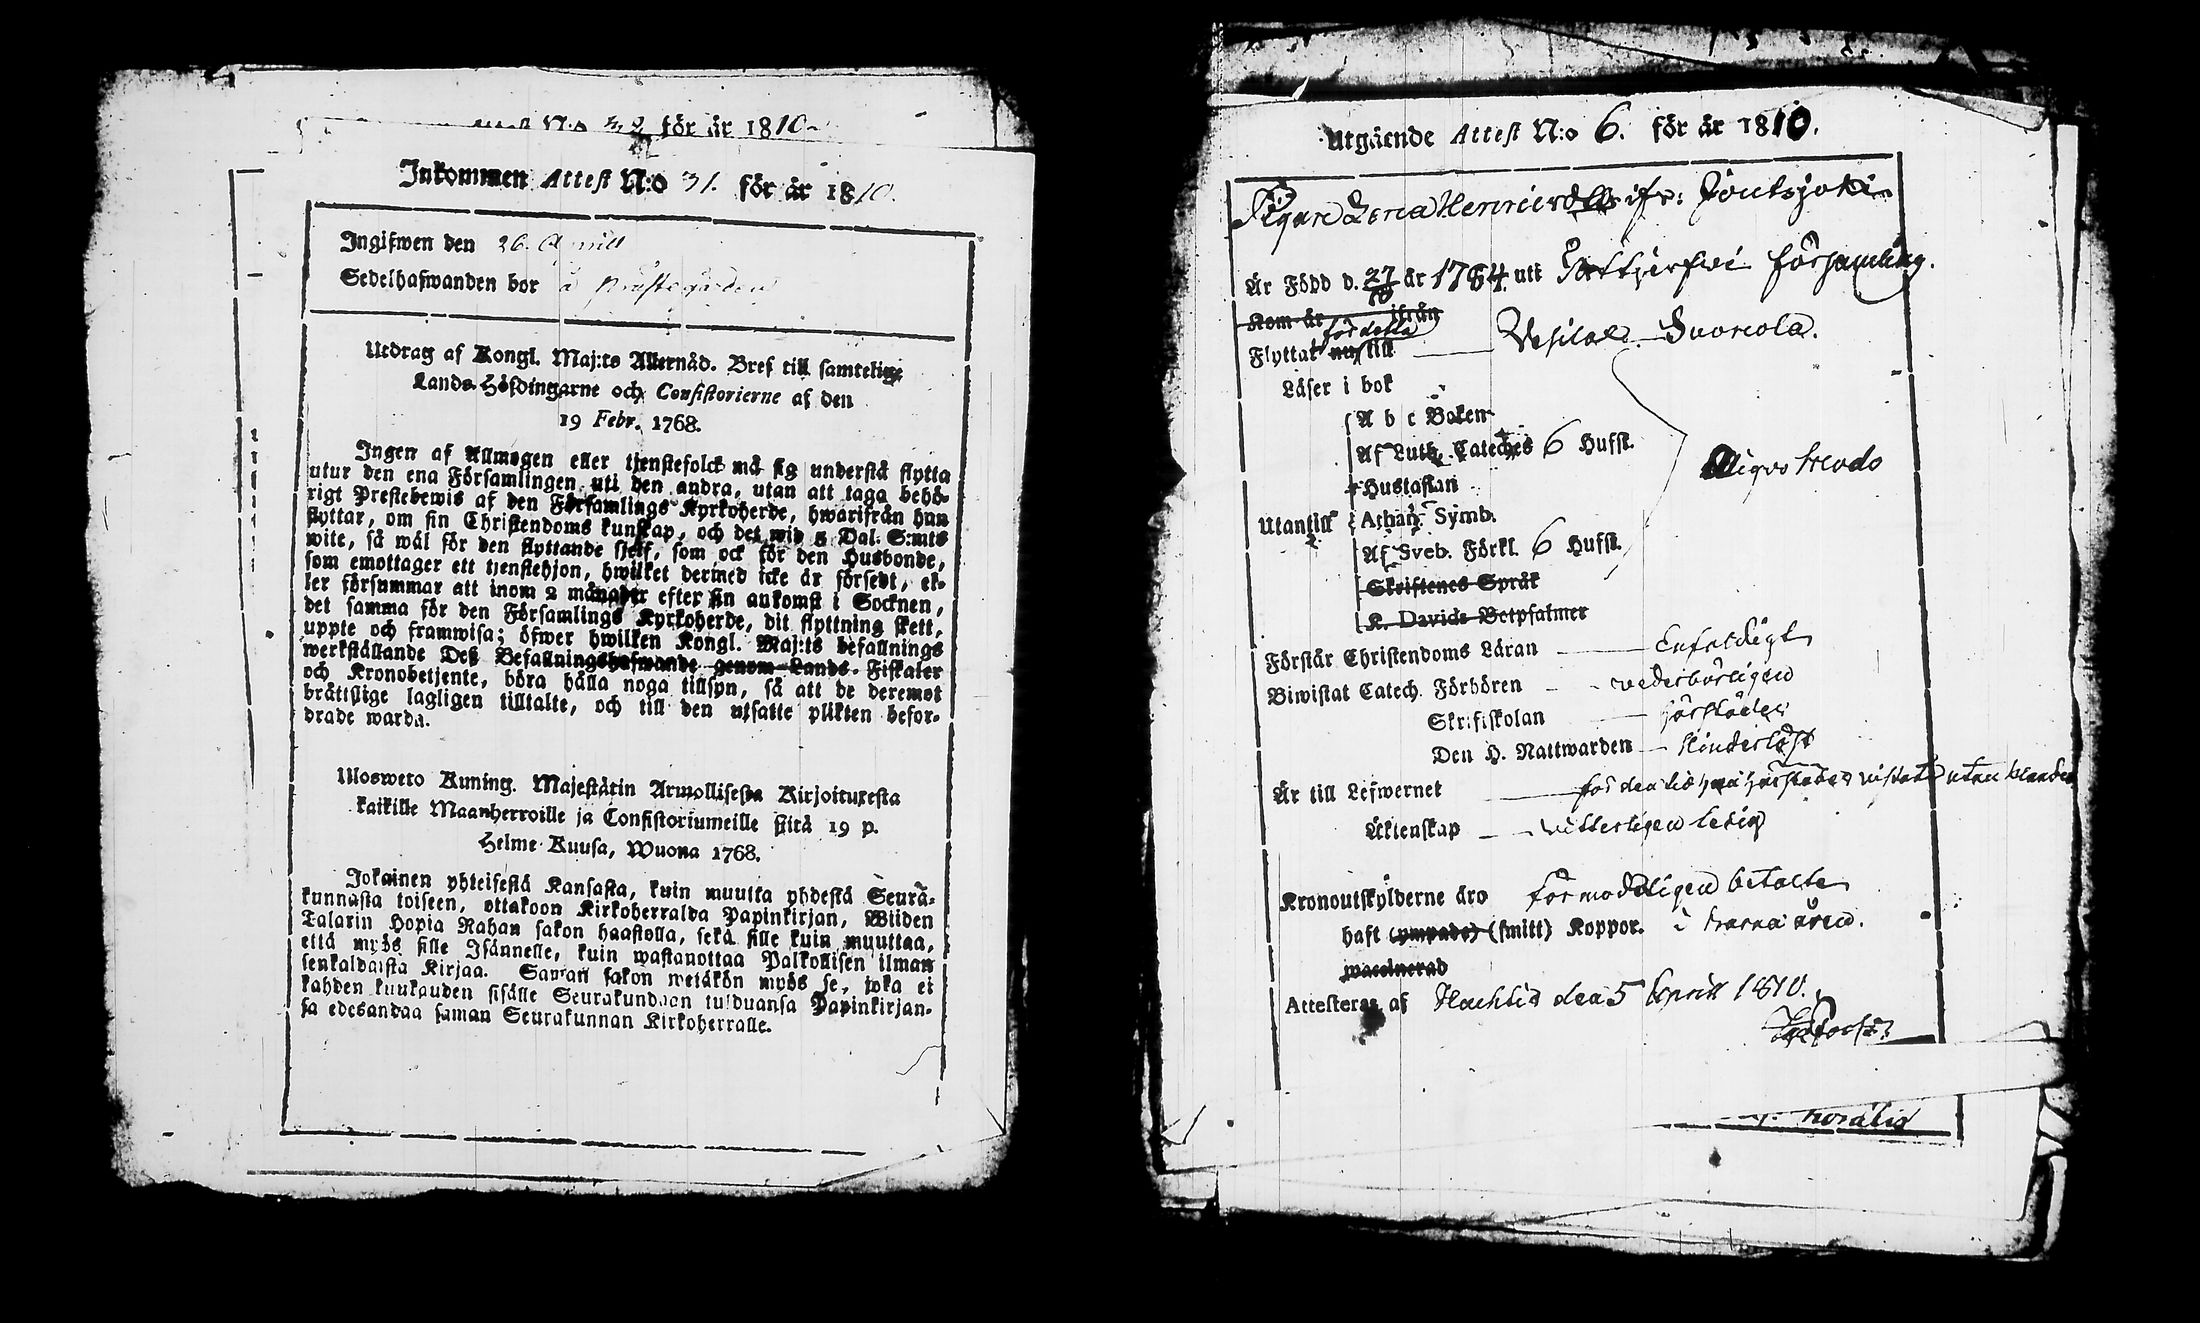 Attest N:o 32 för år 1810
Inkommen Attest N:o 31. för år 1810.
Ingifwen den 26. Aprill
Sedelhafwanden bor å prästegården
Utdrag af Kongl. Maj:ts Allernåd. Bref till samtelige
Lands-Höfdingarne och Consistorierne af den
19 Febr. 1768.
Ingen af Allmogen eller tjenstefolck må sig understå flytta
utur den ena Församlingen uti den andra, utan att taga behö-
rigt Prestebewis af den Församlings Kyrkoherde, hwarifrån han
flyttar, om sin Christendoms kunskap, och det wid 5 Dal. S:mts
wite, så wäl för den flyttande sjelf, som ock för den Husbonde,
som emottager ett tjenstehjon, hwilket dermed icke är försedt, el-
ler försummar att inom 2 månader efter sin ankomst i Socknen,
det samma för den Församlings Kyrkoherde, dit flyttning skett,
uppte och framwisa; öfwer hwilken Kongl. Maj:ts befallnings
werkställande Deß Befallningshafwande genom Lands-Fiskaler
och Kronobetjente, böra hålla noga tillsyn, så att de deremot
bråttslige lagligen tilltalte, och till den utsatte plikten befor-
drade warda.
Ulosweto Kuning. Majestätin Armollisesta Kirjoituxesta
kaikille Maanherroille ja Consistoriumeille siitä 19 p.
Helme-Kuusa, Wuona 1768.
Jokainen yhteisestä Kansasta, kuin muutta yhdestä Seura-
kunnasta toiseen, ottakoon Kirkoherralda Papinkirjan, Wiiden
Talarin Hopia Rahan sakon haastolla, sekä sille kuin muuttaa,
että myös sille Isännelle, kuin wastanottaa Palkollisen ilman
senkaldaista Kirjaa. Saman sakon wetäkön myös se, joka ei
kahden kuukauden sisälle Seurakundaan tulduansa Papinkirjan-
sa edesandaa saman Seurakunnan Kirkoherralle.
Utgående Attest N:o 6. för år 1810.
Pigan Lena Henricsd:r ifr:
Är Född d. 27/10 år 1784 uti församling.
Kom år ifrån
för detta
Flyttat nu till Vesilax Suoniola.
Läser i bok
A b c Boken
Af Luth. Cateches 6 Hufst.
Hustaflan
Utantill Athan. Symb. Aliqvo modo
Af Sveb. Förkl. 6 Hufst.
Skriftenes Språk
K. Davids Betpsalmer
Förstår Christendoms Läran enfaldigt
Biwistat Catech. Förhören wederbörligen
Skriftskolan härstädes
Den H. Nattwarden hinderlöst
Är till Lefwernet för den tid hon härstädes vistats utan klander
Äktenskap witterligen ledig
Kronoutskylderne äro förmodeligen betalte
haft (ympade) (smitt) Koppor. i barna åren.
waccinerad
Attesteras af Nachtis den 5 April 1810.